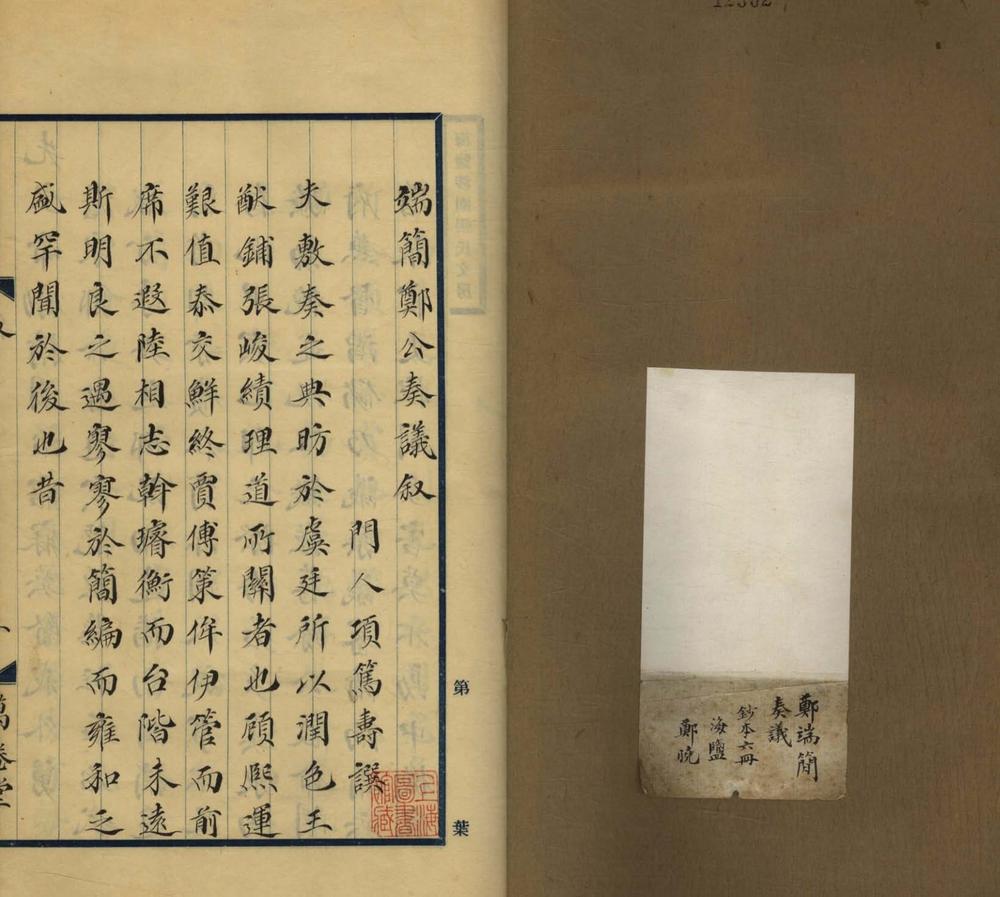 鄭端簡
奏議
鈔本六冊
海鹽
鄭曉
端簡鄭公奏議叙
門人項篤壽譔
夫敷奏之典昉於虞廷所以潤色王
猷鋪張峻績理道所關者也顧熙運
艱值泰交鮮終賈傅策侔伊管而前
席不遐陸相志斡璿衡而台階未遠
斯明良之遇寥寥於簡編而雍和之
盛罕聞於後也昔
第
葉
上海
圖書
館藏
萬卷堂